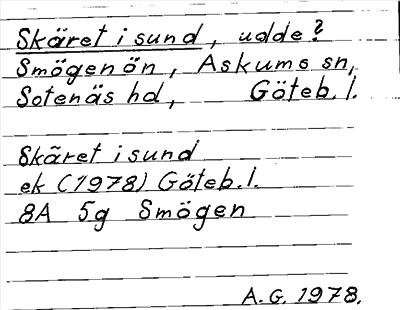 Skäret i sund, udde?
Smögenön, Askums sn,
Sotenäs hd, Göteb. l.
Skäret i sund
ek (1978) Göteb. l.
8A 5g Smögen
A.G. 1978.